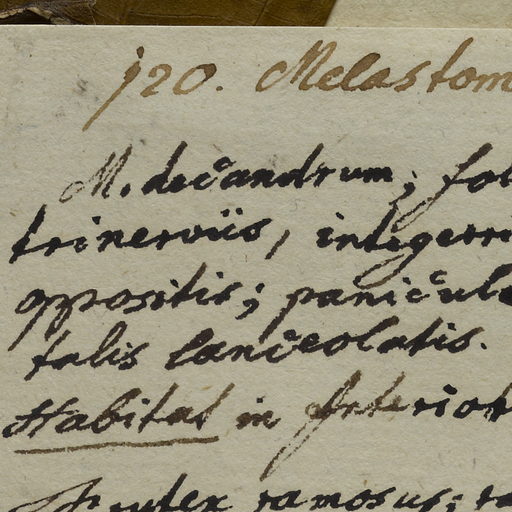 120. Melastom
M. decandrum; fol
trinerviis, integerri
oppositis; panicule
talis lanceolatis.
Habitat in Interior
Frutex ramosus; ra